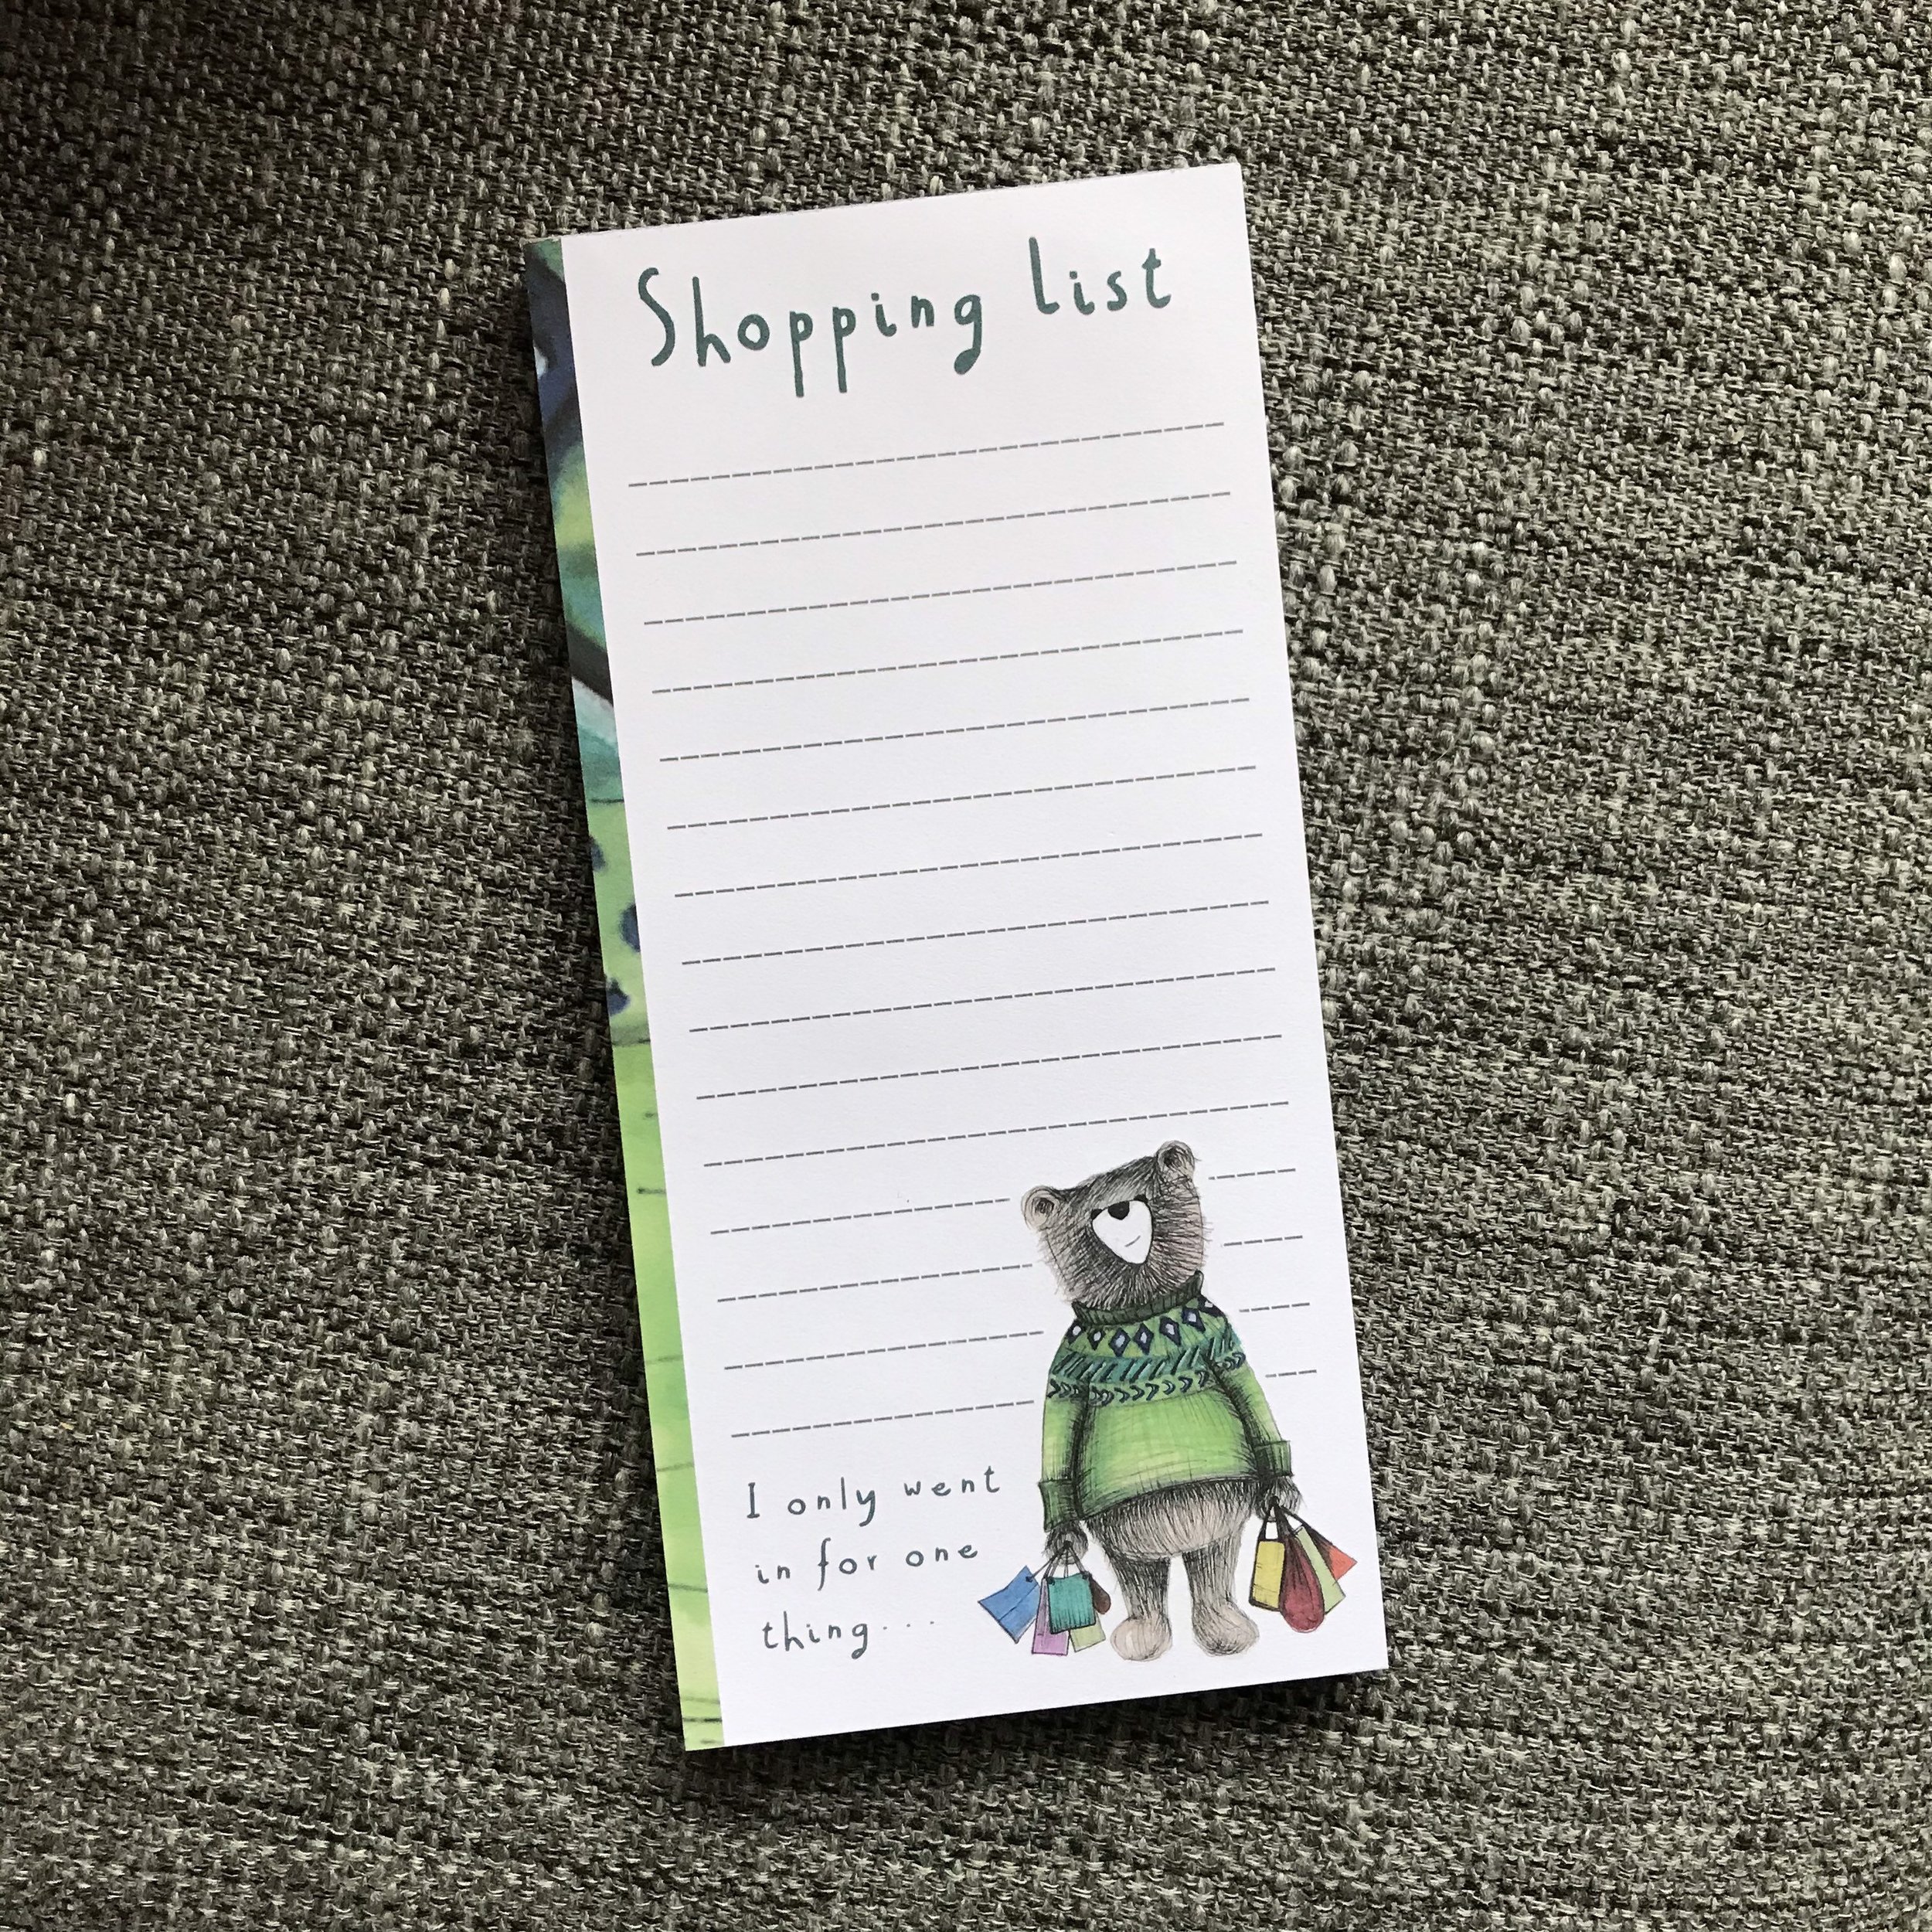 Shopping list
I only went
in for one
thing...